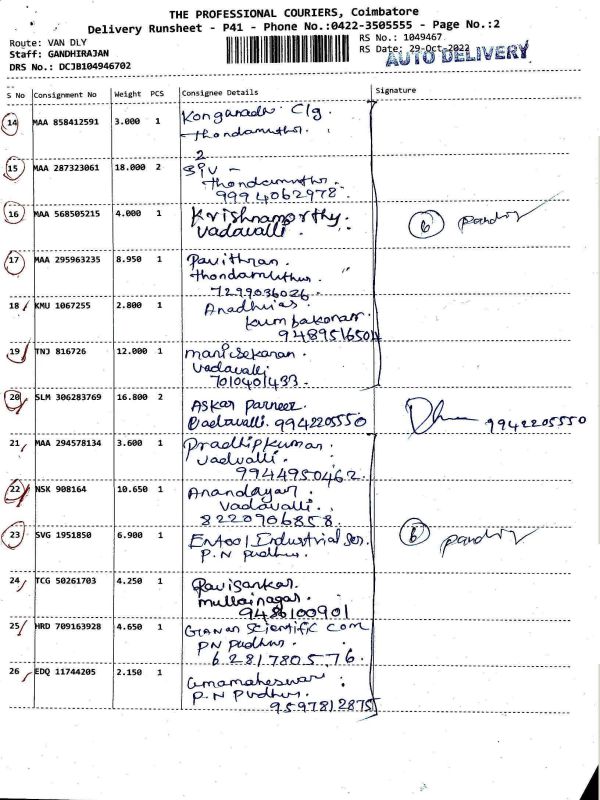 THE PROFESSIONAL COURIERS, Coimbatore
Delivery Runsheet - P41 - Phone No.:0422-3505555 - Page No.:2
Route: VAN DLY
Staff: GANDHIRAJAN
DRS No.: DCJB104946702
RS No.: 1049467
RS Date: 29-Oct-2022
AUTO DELIVERY
S No Consignment No Weight PCS Consignee Details Signature
14 MAA 858412591 3.000 1 Konganadu Clg
Thondamuthur.
15 MAA 287323061 18.000 2 2
Siv -
Thondamuthur.
9994062978
16 MAA 568505215 4.000 1 Krishnamorthy.
Vadavalli. 6 pandiy
17 MAA 295963235 8.950 1 Pavithran.
Thondamuthur. "
7299036026
18 KMU 1067255 2.800 1
Kumbakonam.
9489516504
19 TNJ 816726 12.000 1 manisekaran.
Vadavalli
7010401433
20 SLM 306283769 16.800 2 Askar Parneez
Vadavalli. 9942205550 9942205550
21 MAA 294578134 3.600 1 Pradhipkumar.
vadvalli.
9944950462.
22 NSK 908164 10.650 1 Anandayan.
Vadavalli.
8220906858.
23 SVG 1951850 6.900 1 Entool Industrial Ser.
P.N pudhur. 6 pandiy
24 TCG 50261703 4.250 1 Ravisankar.
mullainagar.
9486100901
25 HRD 709163928 4.650 1 Gianan Scientific Com
PN pudhur.
6281780576.
26 EDQ 11744205 2.150 1 Umamaheswari
P.N Pudhur.
9597812875